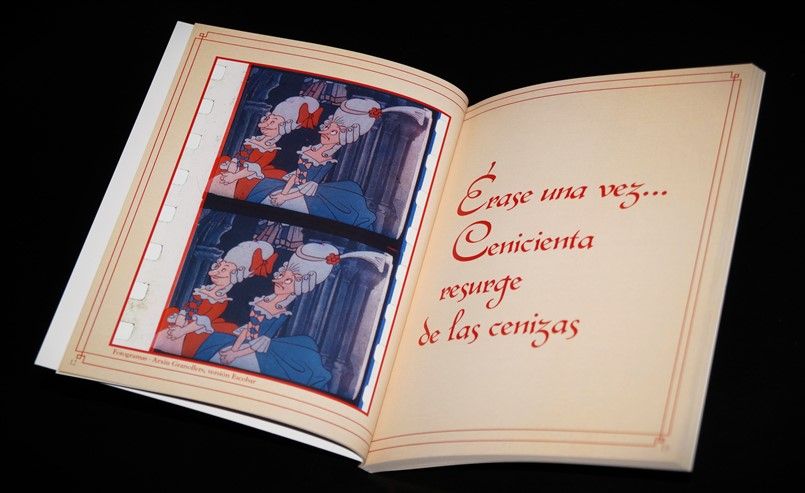 Fotogramas - Arxiu Granollers, versión Escobar
Érase una vez...
Cenicienta
resurge
de las cenizas